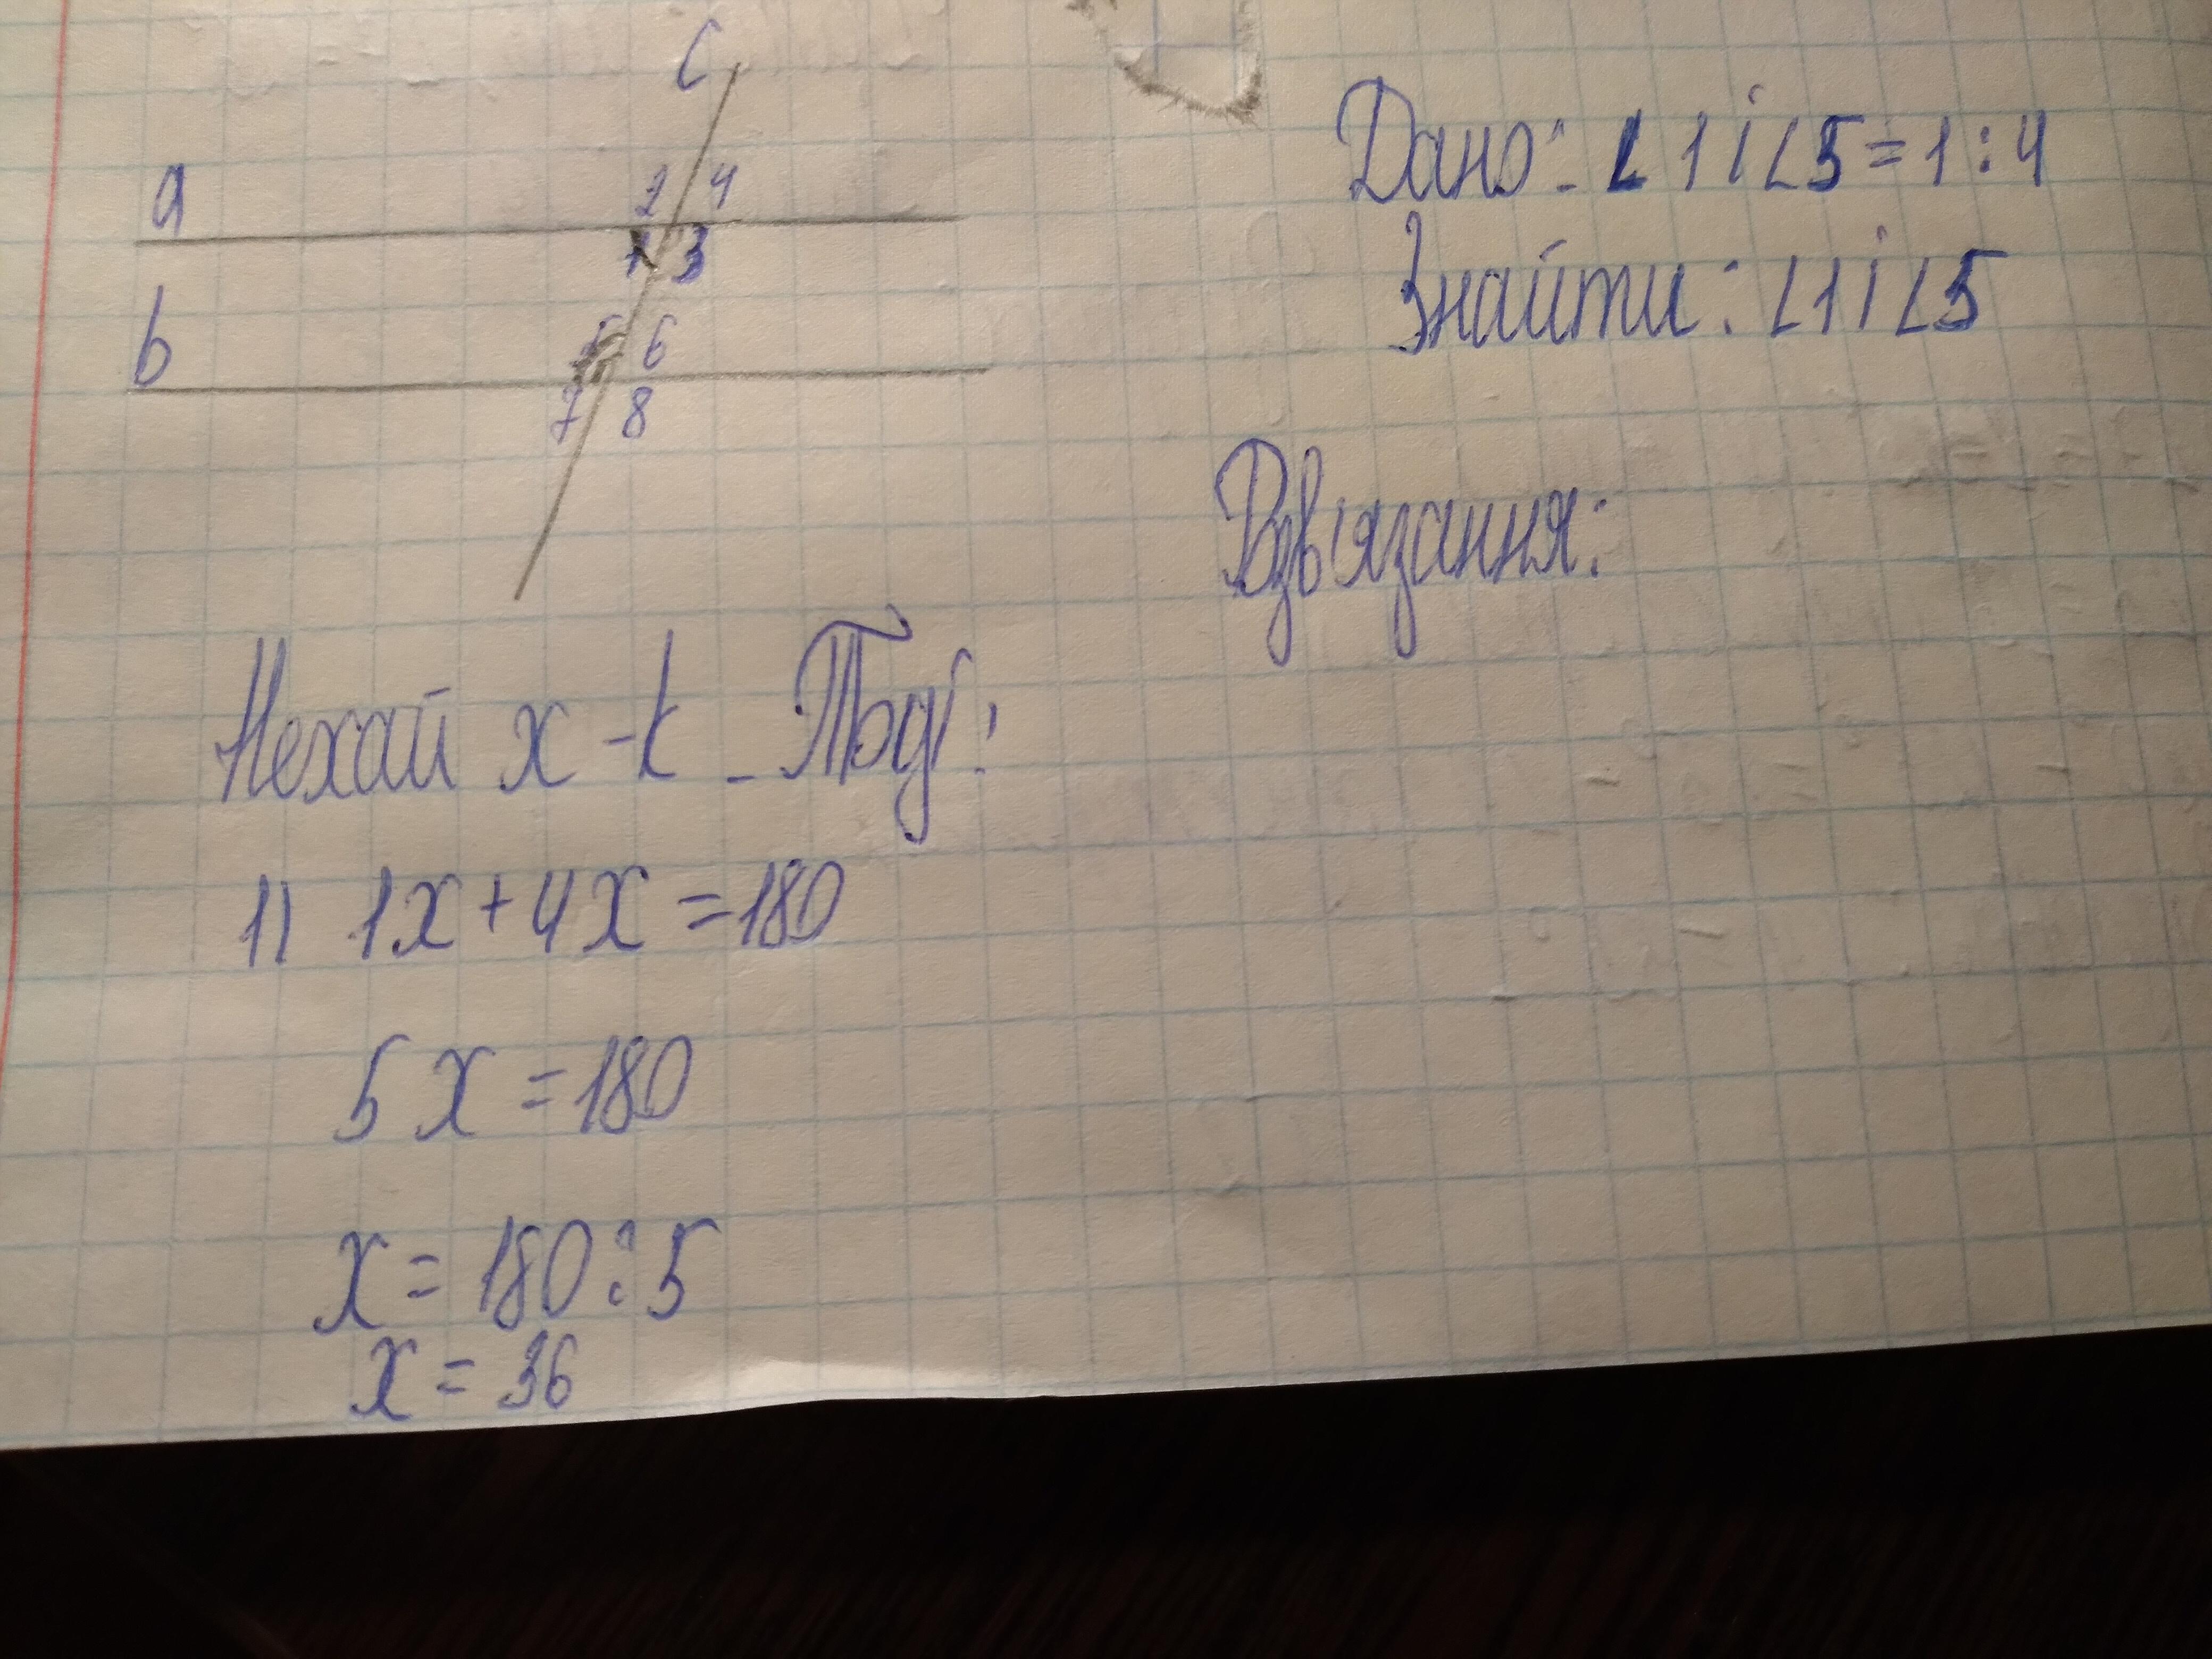 c
a
2 4
1 3
b
5 6
7 8
Дано: ∠1 і ∠5 = 1 : 4
Знайти: ∠1 і ∠5
Розв'язання:
Нехай x - k. Тоді:
1) 1x + 4x = 180
5x = 180
x = 180 : 5
x = 36